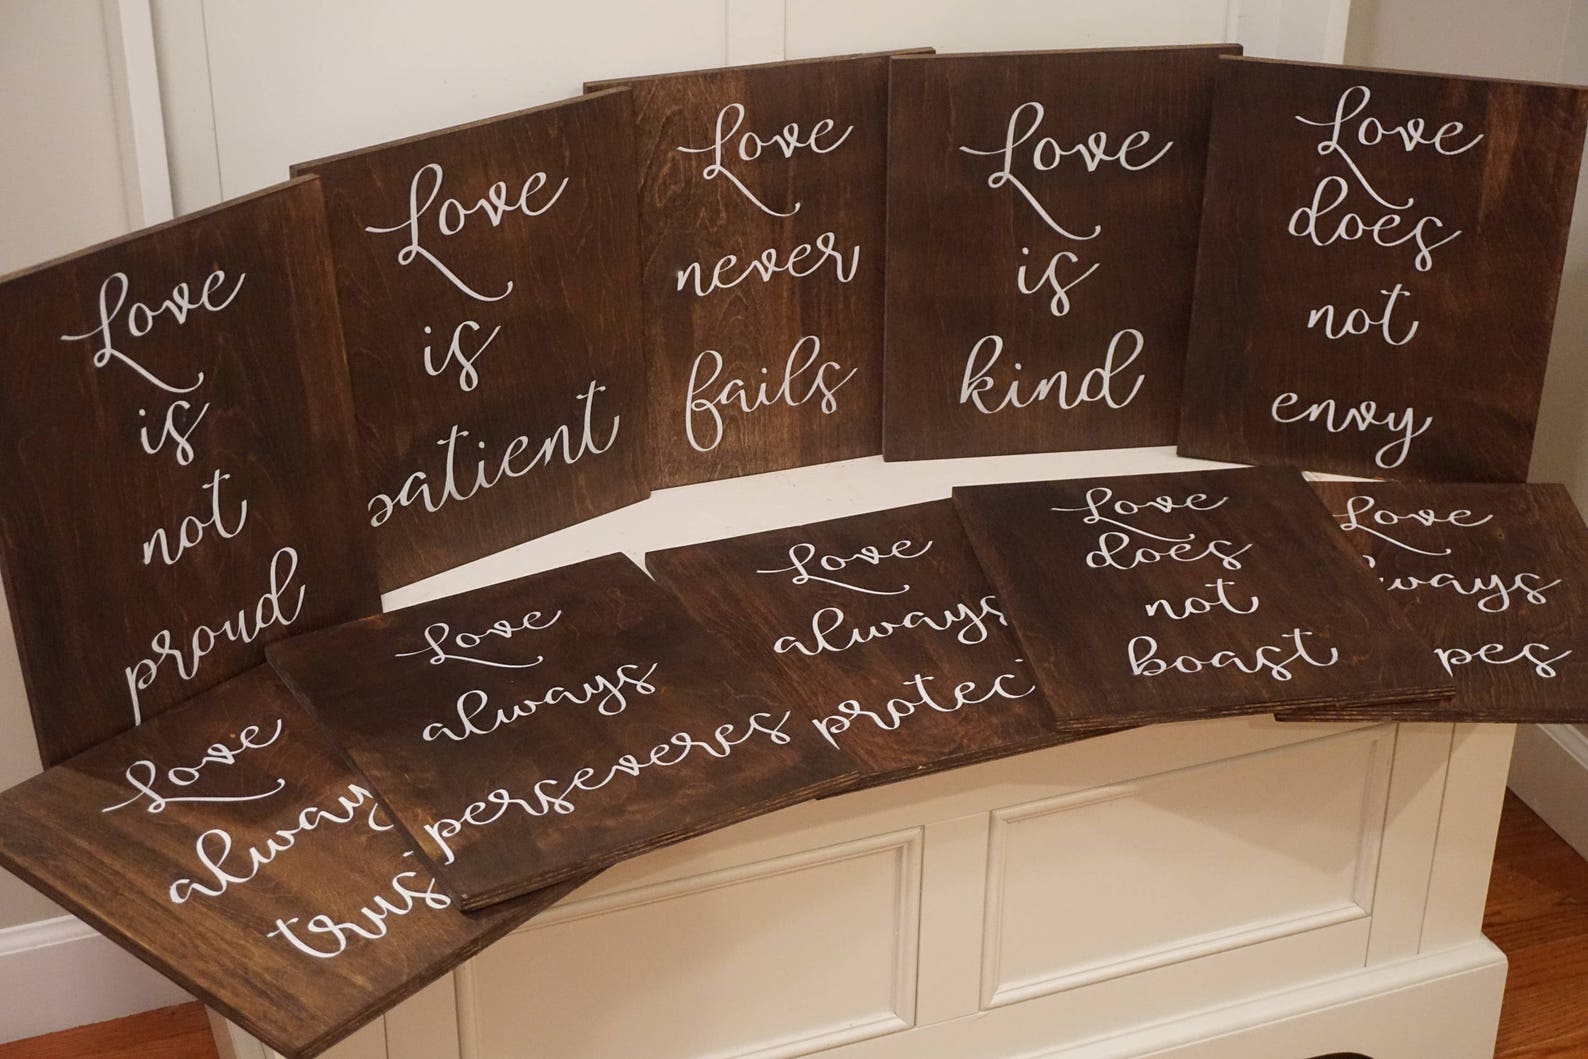 Love
is
not
proud
Love
is
patient
Love
never
fails
Love
is
kind
Love
does
not
envy
Love
always
trus
Love
always
perseveres
Love
always
protec
Love
does
not
boast
Love
ways
pes